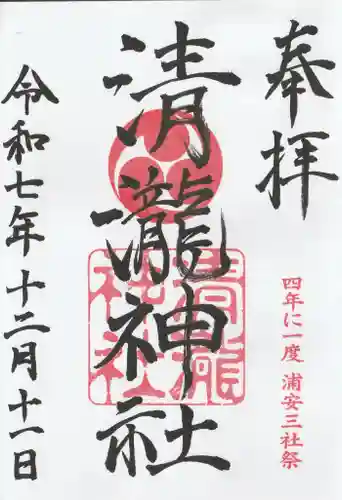 奉拝
四年に一度 浦安三社祭
清瀧神社
令和七年十二月十一日